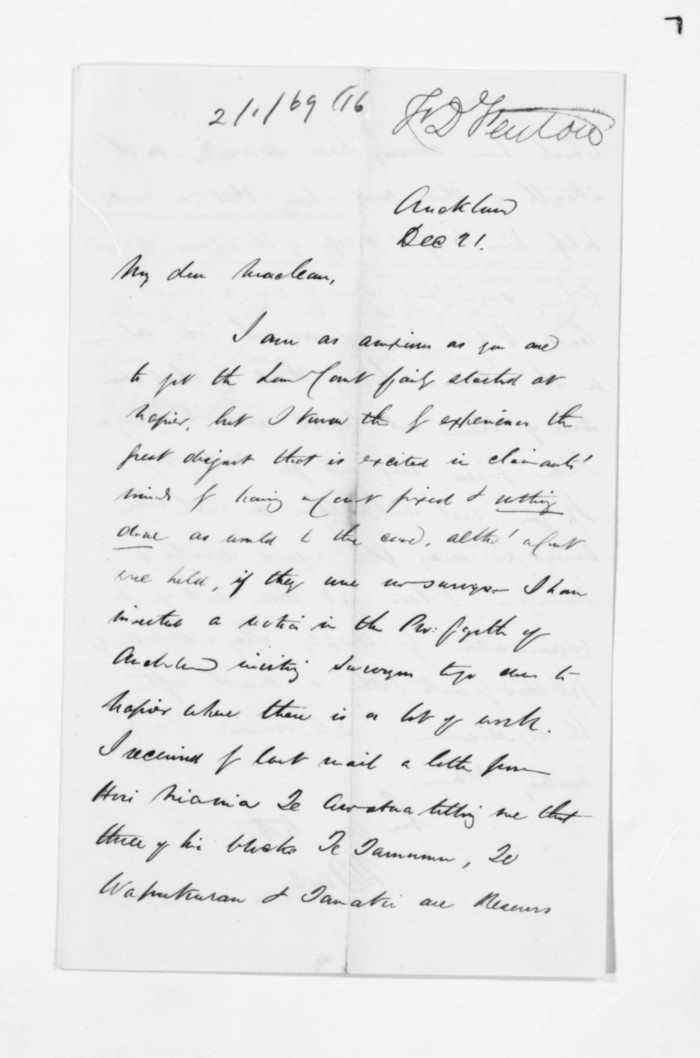 7
2/1/69 (16
F D Fenton
Auckland
Dec 21.
My dear Maclean,
I am as anxious as you are
to get the Land Court fairly started at
Napier, but I know the of experience the
great disgust that is excited in claimants'
minds of having a Court fixed & nothing
done as would be the case, altho' a Court
were held, if they were no surveyor. I have
inserted a notice in the Pro: Gazette of
Auckland inviting Surveyors to go down to
Napier where there is a lot of work.
I received by last mail a letter from
Hori Niania Te telling me that
three of his blocks Te Tamumu, Te
Waipukurau & are Reserves